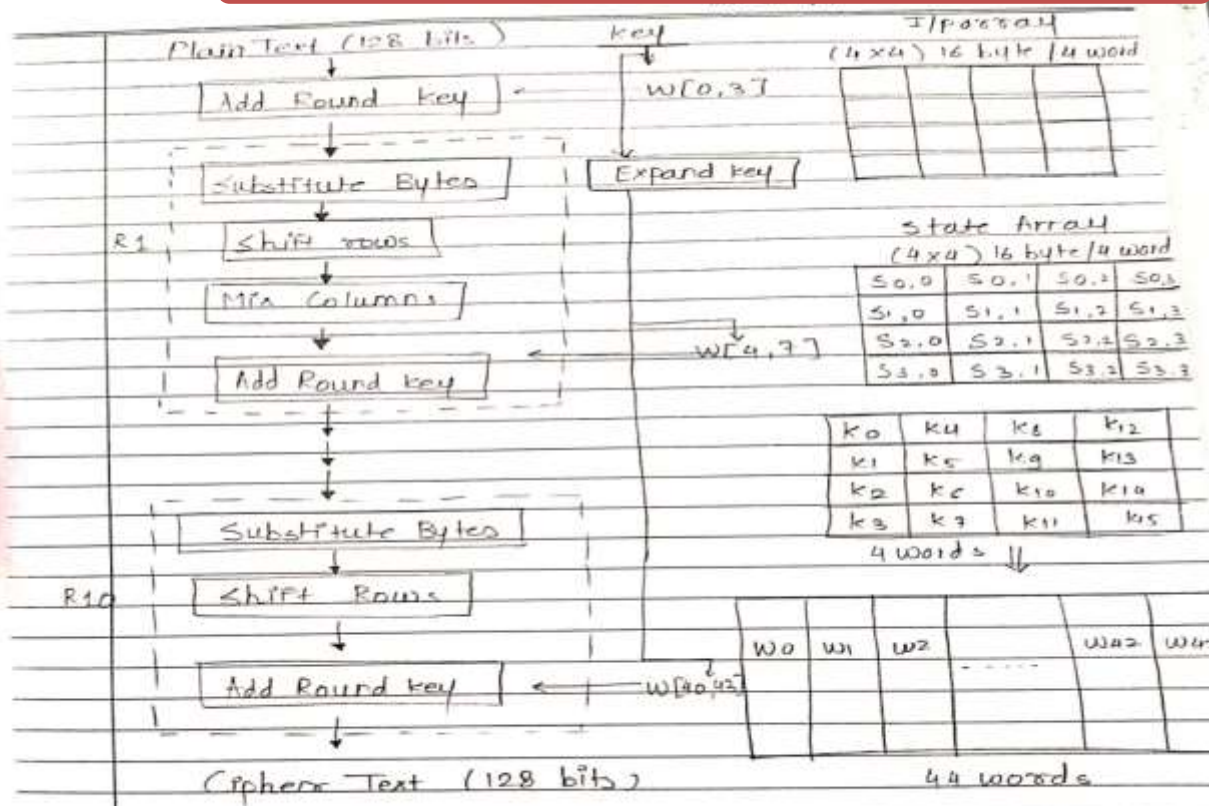 Plain Text (128 bits)
Add Round key
Substitute Bytes
R1
Shift rows
Mix Columns
Add Round key
Substitute Bytes
R10
Shift Rows
Add Round key
Cipherr Text (128 bits)
key
W[0,3]
Expand key
W[4,7]
W[40,43]
I/p array
(4x4) 16 byte/4 word
State Array
(4x4) 16 byte/4 word
S0,0 S0,1 S0,2 S0,3
S1,0 S1,1 S1,2 S1,3
S2,0 S2,1 S2,2 S2,3
S3,0 S3,1 S3,2 S3,3
k0 k4 k8 k12
k1 k5 k9 k13
k2 k6 k10 k14
k3 k7 k11 k15
4 words
W0 W1 W2 ----- W42
44 words